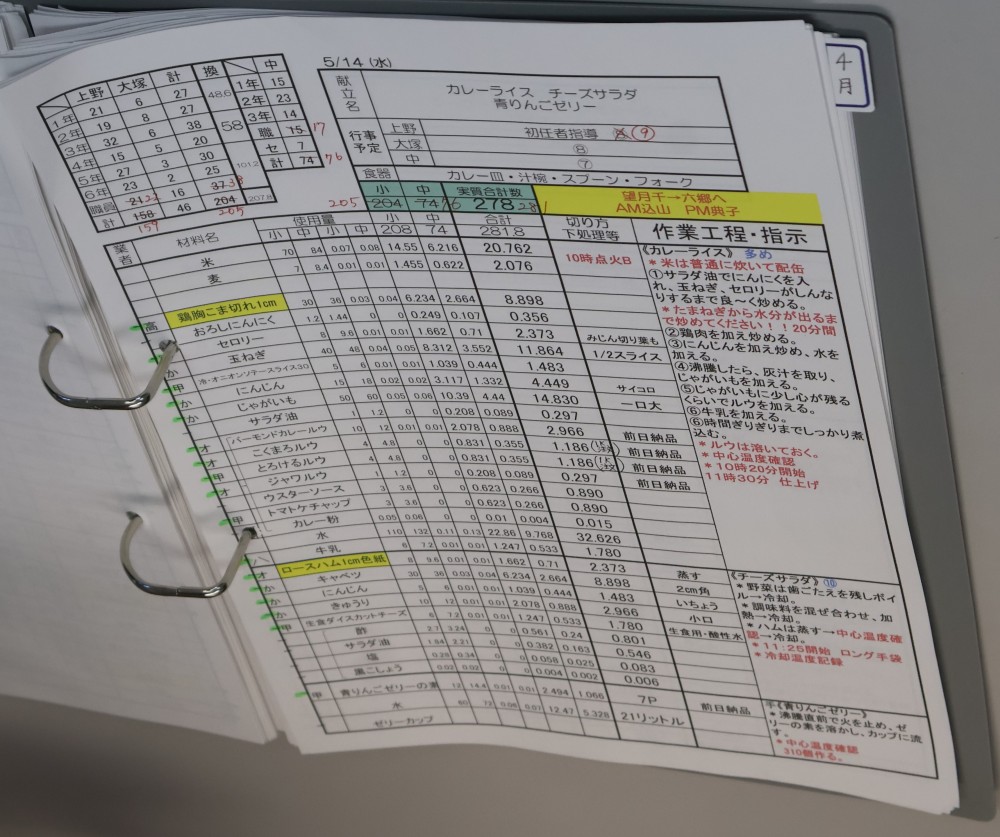 4月
5/14 (水)
上野 大塚 計 換
1年 21 6 27 48.6
2年 19 8 27
3年 32 6 38 58
4年 15 5 20
5年 27 3 30 101.2
6年 23 2 25
職員 21 22 16 37 38
計 158 46 204 207.8
159 205
中
1年 15
2年 23
3年 14
職 15 17
セ 7
計 74 76
献立名 カレーライス チーズサラダ
青りんごゼリー
行事予定 上野 初任者指導 (9)
大塚 ⑧
中 ⑦
食器 カレー皿・汁椀・スプーン・フォーク
小 中 実質合計数
205 204 74 76 278 281
望月千→六郷へ
AM込山 PM典子
業者 材料名 使用量 小 中 合計 切り方
小 中 小 中 208 74 281.8 下処理等
作業工程・指示
米 70 84 0.07 0.08 14.55 6.216 20.762 10時点火B
麦 7 8.4 0.01 0.01 1.455 0.622 2.076
高 鶏胸こま切れ1cm 30 36 0.03 0.04 6.234 2.664 8.898
おろしにんにく 1.2 1.44 0 0 0.249 0.107 0.356
か セロリー 8 9.6 0.01 0.01 1.662 0.71 2.373 みじん切り葉も
か 玉ねぎ 40 48 0.04 0.05 8.312 3.552 11.864 1/2スライス
甲 冷・オニオンソテースライス30 5 6 0.01 0.01 1.039 0.444 1.483
か にんじん 15 18 0.02 0.02 3.117 1.332 4.449 サイコロ
か じゃがいも 50 60 0.05 0.06 10.39 4.44 14.830 一口大
サラダ油 1 1.2 0 0 0.208 0.089 0.297
オ バーモンドカレールウ 10 12 0.01 0.01 2.078 0.888 2.966 前日納品
オ こくまろルウ 4 4.8 0 0 0.831 0.355 1.186 前日納品
甲 とろけるルウ 4 4.8 0 0 0.831 0.355 1.186 前日納品
オ ジャワルウ 1 1.2 0 0 0.208 0.089 0.297
ウスターソース 3 3.6 0 0 0.623 0.266 0.890
甲 トマトケチャップ 3 3.6 0 0 0.623 0.266 0.890
カレー粉 0.05 0.06 0 0 0.01 0.004 0.015
水 110 132 0.11 0.13 22.86 9.768 32.626
牛乳 6 7.2 0.01 0.01 1.247 0.533 1.780
オ ロースハム1cm色紙 8 9.6 0.01 0.01 1.662 0.71 2.373 蒸す
か キャベツ 30 36 0.03 0.04 6.234 2.664 8.898 2cm角
か にんじん 5 6 0.01 0.01 1.039 0.444 1.483 いちょう
か きゅうり 10 12 0.01 0.01 2.078 0.888 2.966 小口
甲 生食ダイスカットチーズ 6 7.2 0.01 0.01 1.247 0.533 1.780 生食用・酸性水
酢 2.7 3.24 0 0 0.561 0.24 0.801
サラダ油 1.84 2.21 0 0 0.382 0.163 0.546
塩 0.28 0.34 0 0 0.058 0.025 0.083
黒こしょう 0.02 0.02 0 0 0.004 0.002 0.006
甲 青りんごゼリーの素 12 14.4 0.01 0.01 2.494 1.066 7P 前日納品
水 60 72 0.06 0.01 12.47 5.328 21リットル
ゼリーカップ
《カレーライス》 多め
*米は普通に炊いて配缶
①サラダ油でにんにくを入れ、玉ねぎ、セロリーがしんなりするまで良〜く炒める。
*たまねぎから水分が出るまで炒めてください!!20分間
②鶏肉を加え炒める。
③にんじんを加え炒め、水を加える。
④沸騰したら、灰汁を取り、じゃがいもを加える。
⑤じゃがいもに少し心が残るくらいでルウを加える。
⑥牛乳を加える。
⑥時間ぎりぎりまでしっかり煮込む。
*ルウは溶いておく。
*中心温度確認
*10時20分開始
11時30分 仕上げ
《チーズサラダ》⑩
*野菜は歯ごたえを残しボイル→冷却。
*調味料を混ぜ合わせ、加熱→冷却。
*ハムは蒸す→中心温度確認→冷却。
*11:25開始 ロング手袋
*冷却温度記録
《青りんごゼリー》
*沸騰直前で火を止め、ゼリーの素を溶かし、カップに流す。
*中心温度確認
310個作る。